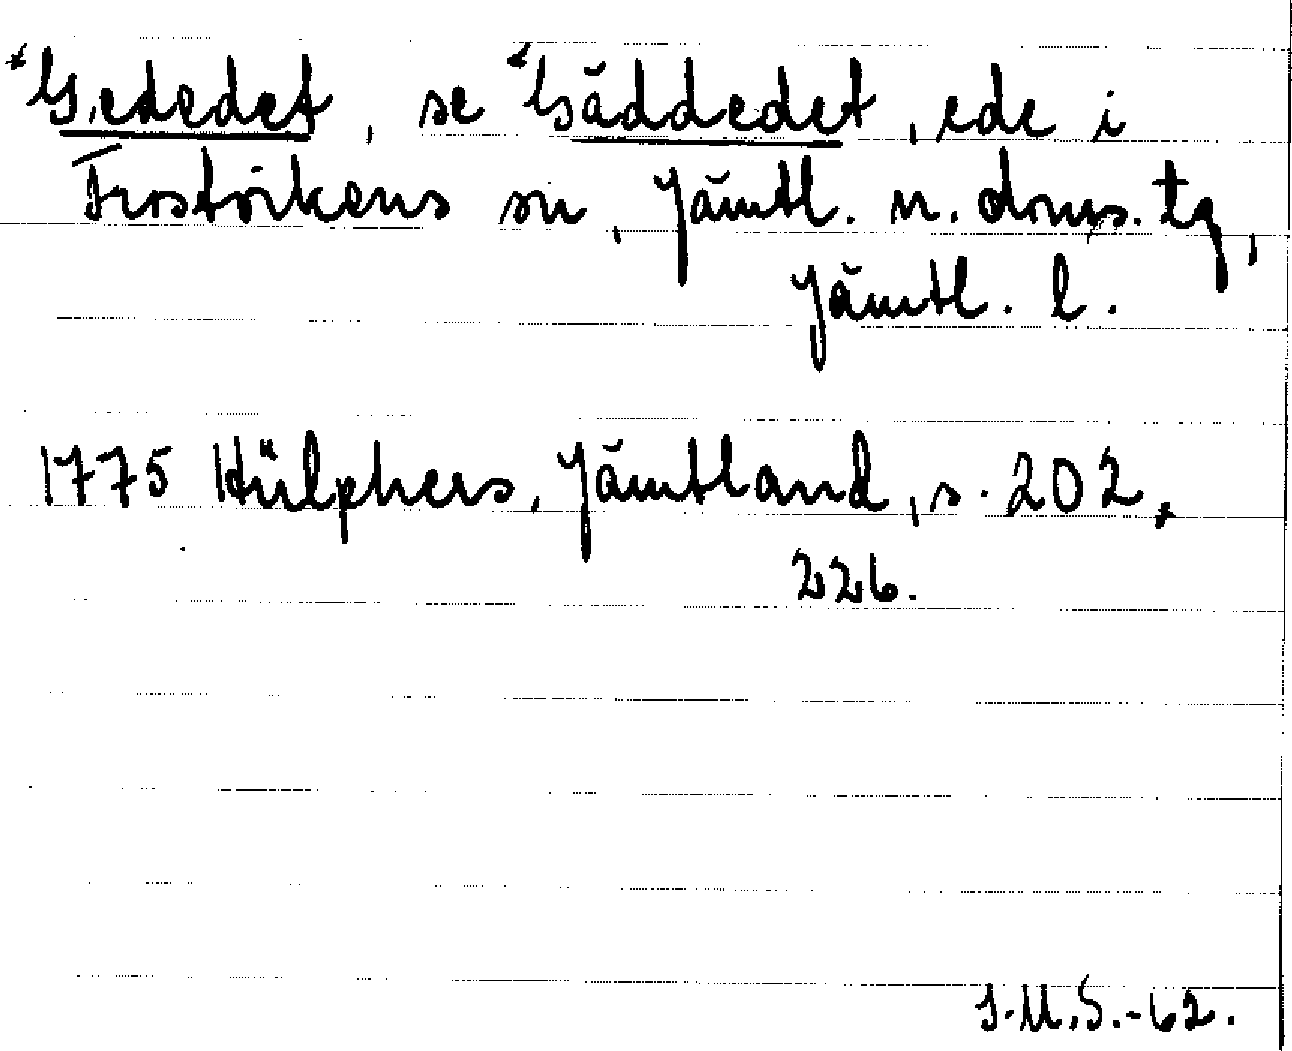 *Gededet, se *Gäddedet, ede i
Frostvikens sn, Jämtl. n. doms. tg,
Jämtl. l.
1775 Hülphers, Jämtland, s. 202,
226.
I.M.S.-62.